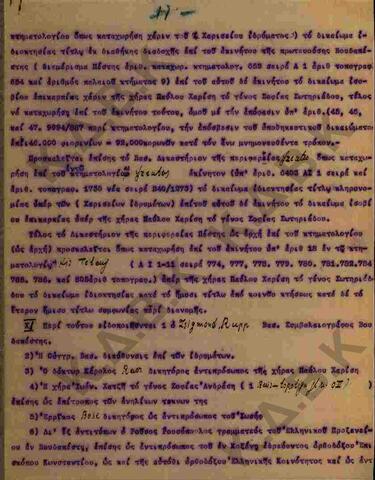 κτηματολογίου ὅπως καταχωρήση χάριν τοῦ ( Χαρισείου ἱδρύματος ) τό δικαίωμα ἰ
διοκτησίας τίτλῳ ἐκ διαθήκης διαδοχῆς ἐπί τοῦ ἀκινήτου τῆς πρωτευούσης Βουδαπέσ
της ( διαμέρισμα Πέστης ἀριθ. καταχωρ. κτηματολογ. 689 σειρά Α 1 ἀριθ τοπογραφ.
654 καί ἀριθμός παλαιοῦ κτήματος 9) ἐπί τοῦ αὐτοῦ δέ ἀκινήτου τό δικαίωμα ἰσο
βίου ἐπικαρπίας χάριν τῆς χήρας Παύλου Χαρίση τό γένος Σοφίας Σωτηριάδου, τέλος
νά καταχωρήση ἐπί τοῦ ἀκινήτου τούτου, ὁμοῦ μέ τήν ἀπόφασιν ὑπ' ἀριθ.(45, 46,
καί 47. 9994/887 περί κτηματολογίου, τήν ἀπόσβεσιν τοῦ ὑποθηκευτικοῦ δικαιώματος
ἐπί 40.000 φιορινίων = 92.000 κορωνῶν κατά τόν ἄνω μνημονευθέντα τρόπον.-
Προσκαλεῖται ἐπίσης τό Βασ. Δικαστήριον τῆς περιφερείας ὅπως καταχω
ρήση ἐπί τοῦ ἀκινήτου (ὑπ' ἀριθ. 6403 ΑΙ 1 σειρά καί
ἀριθ. τοπογραφ. 1730 νέα σειρά 240/1273) τό δικαίωμα ἰδιοκτησίας τίτλῳ κληρονο
μίας ὑπέρ τῶν ( Χαρισείων ἱδρυμάτων) ἐπί τοῦ αὐτοῦ δέ ἀκινήτου τό δικαίωμα ἰσοβί
ου ἐπικαρπίας ὑπέρ τῆς χήρας Παύλου Χαρίση τό γένος Σοφίας Σωτηριάδου.
Τέλος τό Δικαστήριον τῆς περιφερείας Πέστης ὡς ἀρχή ἐπί τοῦ κτηματολογίου
(ὡς ἀρχή) προσκαλεῖται ὅπως καταχωρήση ἐπί τοῦ ἀκινήτου ὑπ' ἀριθ 18 ἐν τῷ κτη
ματολογίῳ ( Α Ι 1-11 σειρά 774, 777, 778, 779, 780, 781.782.784
785, 786, καί 808 ἀριθ τοπογραφ.) ὑπέρ τῆς χήρας Παύλου Χαρίση τό γένος Σωτηριάδου
τό δικαίωμα ἰδιοκτησίας κατά τό ἥμισυ τίτλῳ ἀπό κοινοῦ κτήσεως κατά δέ τό
ἕτερον ἥμισυ τίτλῳ συμφωνίας περί διανομῆς.
Περί τούτου εἰδοποιοῦνται 1 ὁ Zsigmond Rupp Βασ. Συμβολαιογράφος Βου
δαπέστης.
2) Ἡ Οὑγγρ. Βασ. διεύθυνσις ἐπί τῶν ἱδρυμάτων.
3) Ὁ δόκτωρ Κάρολος δικηγόρος ἀντιπρόσωπος τῆς χήρας Παύλου Χαρίση
4) Ἡ χήρα Ἰωάν. Χατζῆ τό γένος Σοφίας Ἀνδρέση ( 1
ἐπίσης ὡς ἐπίτροπος τῶν ἀνηλίκων τέκνων της
5) Ἑρρῖκος δικηγόρος ὡς ἀντιπρόσωπος τοῦ
6) Δι' ἕξ ἀντιτύπων ὁ Ροῦσος Ρουσόπουλος γραμματεύς τοῦ Ἑλληνικοῦ Προξενεί
ου ἐν Βουδαπέστῃ, ἐπίσης ὡς ἀντιπρόσωπος τοῦ ἐν Κοζάνῃ ἑδρεύοντος ὀρθοδόξου Ἐπι
σκόπου Κωνσταντίου, ὡς καί τῆς αὐτόθι ὀρθοδόξου Ἑλληνικῆς Κοινότητος καί ὡς ἀντ